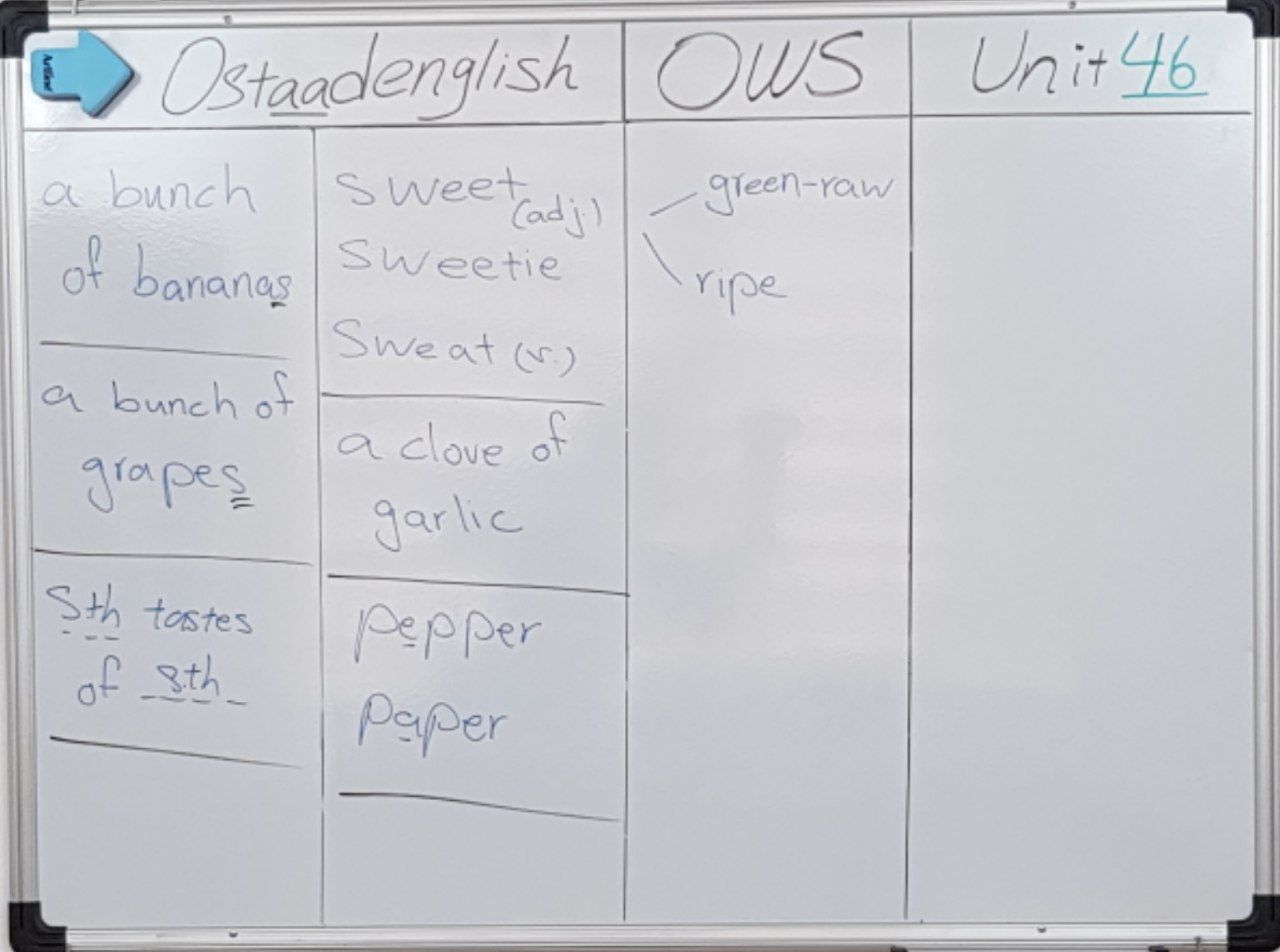 Ostaadenglish
OWS
Unit 46
a bunch
of bananas
a bunch of
grapes
Sth tastes
of sth
sweet (adj.)
Sweetie
Sweat (v.)
a clove of
garlic
pepper
paper
green-raw
ripe